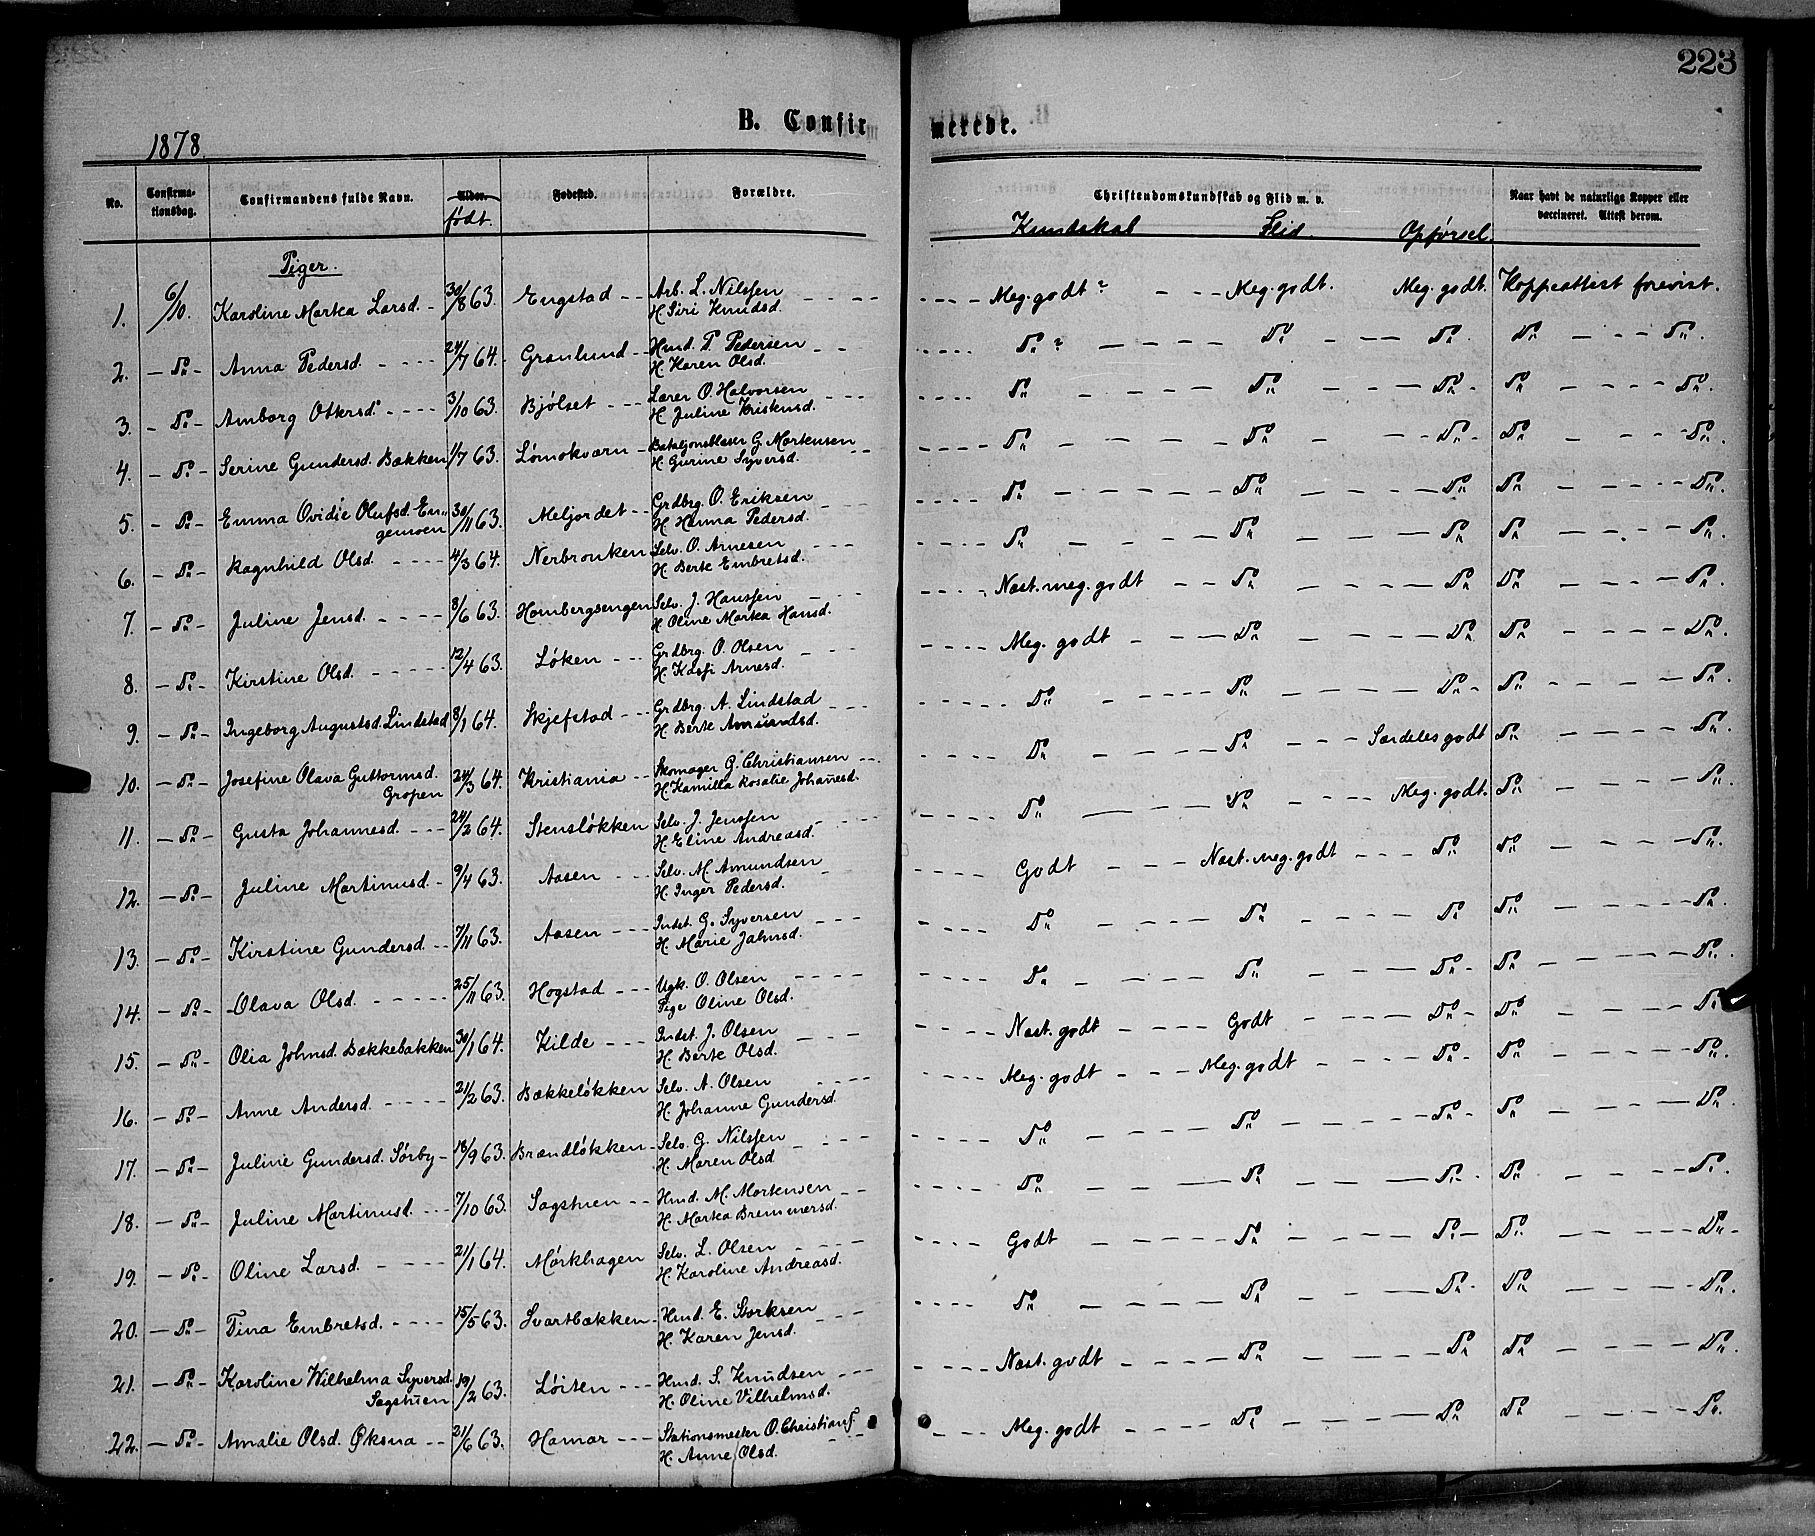 223
B. Confirmerede.
1878.
No. Confirmationsdag. Confirmandens fulde Navn. Alder. født. Fødested. Forældre. Christendomskundskab og Flid m. v. Naar havt de naturlige Kopper eller vaccineret. Attest derom.
Kundskab Flid. Opførsel.
Piger.
1. 6/10 Karoline Marta Larsd. 30/8 63. Engstad Arb. L. Nilssen H. Siri Knudsd. Meg. godt? Meg. godt. Meg. godt. Koppeattest forevist.
2. Do Anna Pedersd. 24/7 64. Grønlund Hmd. P. Pedersen H. Karen Olsd. Do? Do Do Do Do
3. Do Amborg Ottersd. 3/10 63. Bjølset Lærer O. Halvorsen H. Juline Kristensd. Do Do Do Do Do
4. Do Serine Gundersd. Bækken 1/7 63. Lømokværn Bataljonsblaser G. Mortensen H. Gurine Syversd. Do Do Do Do Do
5. Do Emma Ovidie Olufsd. Engemoen 30/11 63. Meljordet Grdbrg. O. Eriksen H. Hanna Pedersd. Do Do Do Do Do
6. Do Ragnhild Olsd. 4/3 64. Nerbronken Selv. O. Arnesen H. Berte Embretsd. Do Do Do Do Do
7. Do Juline Jensd. 8/6 63. Hombergsengen Selv. J. Hanssen H. Oline Marta Hansd. Næst. meg. godt Do Do Do Do
8. Do Kirstine Olsd. 12/4 63. Løken Grdbrg. O. Olsen H. Kasji Arnesd. Meg. godt Do Do Do Do
9. Do Ingeborg Augustsd. Lindstad 8/1 64. Skjefstad Grdbrg. A. Lindstad H. Berte Amundsd. Do Do Do Do Do
10. Do Josefine Olava Guttormsd. Gropen 24/3 64. Kristiania Skomager G. Christiansen H. Kamilla Rosalie Johanesd. Do Do Særdeles godt Do Do
11. Do Gusta Johannesd. 24/2 64. Stensløkken Selv. J. Jenssen H. Eline Andreasd. Do Do Meg. godt. Do Do
12. Do Juline Martinusd. 9/4 63. Aasen Selv. M. Amundsen H. Inger Pedersd. Godt Næst. meg. godt Do Do Do
13. Do Kirstine Gundersd. 7/11 63. Aasen Indst. G. Syversen H. Marie Jahnsd. Do Do Do Do Do
14. Do Olava Olsd. 25/11 63. Hogstad Ugk. O. Olsen Pige Oline Olsd. Do Do Do Do Do
15. Do Olia Johnsd. Bækkebakken 30/1 64. Kilde Indst. J. Olsen H. Berte Olsd. Næst. godt Godt Do Do Do
16. Do Anne Andersd. 21/2 63. Bækkeløkken Selv. A. Olsen H. Johanne Gundersd. Meg. godt Meg. godt Do Do Do
17. Do Juline Gundersd. Sørby 18/9 63. Brændløkken Selv. G. Nilssen H. Maren Olsd Do Do Do Do Do
18. Do Juline Martinusd. 7/10 63. Sagstuen Hmd. M. Mortensen H. Marta Bremmersd. Do Do Do Do Do
19. Do Oline Larsd. 21/1 64. Mørkhagen Selv. L. Olsen H. Karoline Andreasd. Godt Do Do Do Do
20. Do Tina Embretsd. 15/5 63. Svartbækken Hmd. E. Storksen H. Karen Jensd. Do Do Do Do Do
21. Do Karoline Wilhelma Syversd. Sagstuen 19/2 63. Løiten Hmd. S. Knudsen H. Oline Vilhelmsd. Næst. godt Do Do Do Do
22. Do Amalie Olsd. Øksna 21/6 63. Hamar Stationsmester O. Christians H. Anne Olsd. Meg. godt Do Do Do Do